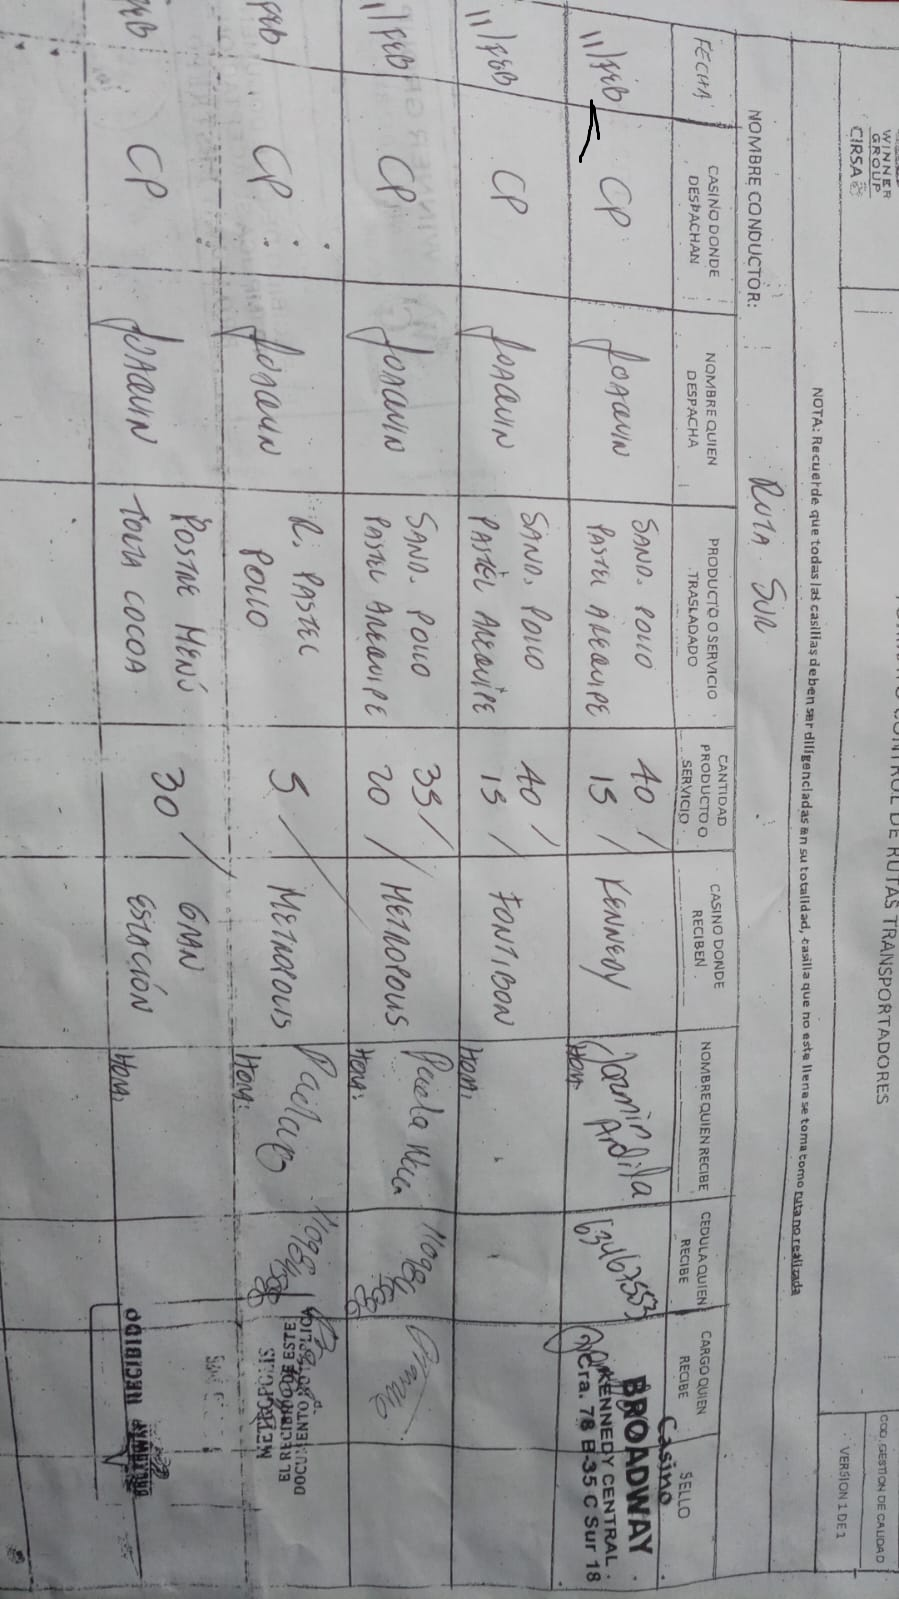 WINNER
GROUP
CIRSA
CONTROL DE RUTAS TRANSPORTADORES
COD. GESTION DE CALIDAD
VERSION 1 DE 1
NOTA: Recuerde que todas las casillas deben ser diligenciadas en su totalidad, casilla que no este llena se toma como ruta no realizada
NOMBRE CONDUCTOR: RUTA SUR
FECHA
CASINO DONDE DESPACHAN
NOMBRE QUIEN DESPACHA
PRODUCTO O SERVICIO TRASLADADO
CANTIDAD PRODUCTO O SERVICIO
CASINO DONDE RECIBEN
NOMBRE QUIEN RECIBE
CEDULA QUIEN RECIBE
CARGO QUIEN RECIBE
SELLO
11/FEB CP JOAQUIN SAND. POLLO 40 / KENNEDY Ardila
PASTEL AREQUIPE 15 / HORA:
Casino
BROADWAY
KENNEDY CENTRAL
Cra. 78 B-35 C Sur 18
11/FEB CP JOAQUIN SAND. POLLO 40 / FONTIBON
PASTEL AREQUIPE 15 / HORA:
11/FEB CP JOAQUIN SAND. POLLO 35/ METROPOLIS Paola
PASTEL AREQUIPE 20 / HORA:
FEB CP JOAQUIN R. PASTEL 5 / METROPOLIS
POLLO HORA:
DOCUMENTO
EL RECIBO DE ESTE
METROPOLIS
FEB CP JOAQUIN POSTRE MENÚ 30 / GRAN
TORTA COCOA ESTACIÓN HORA:
RECIBIDO